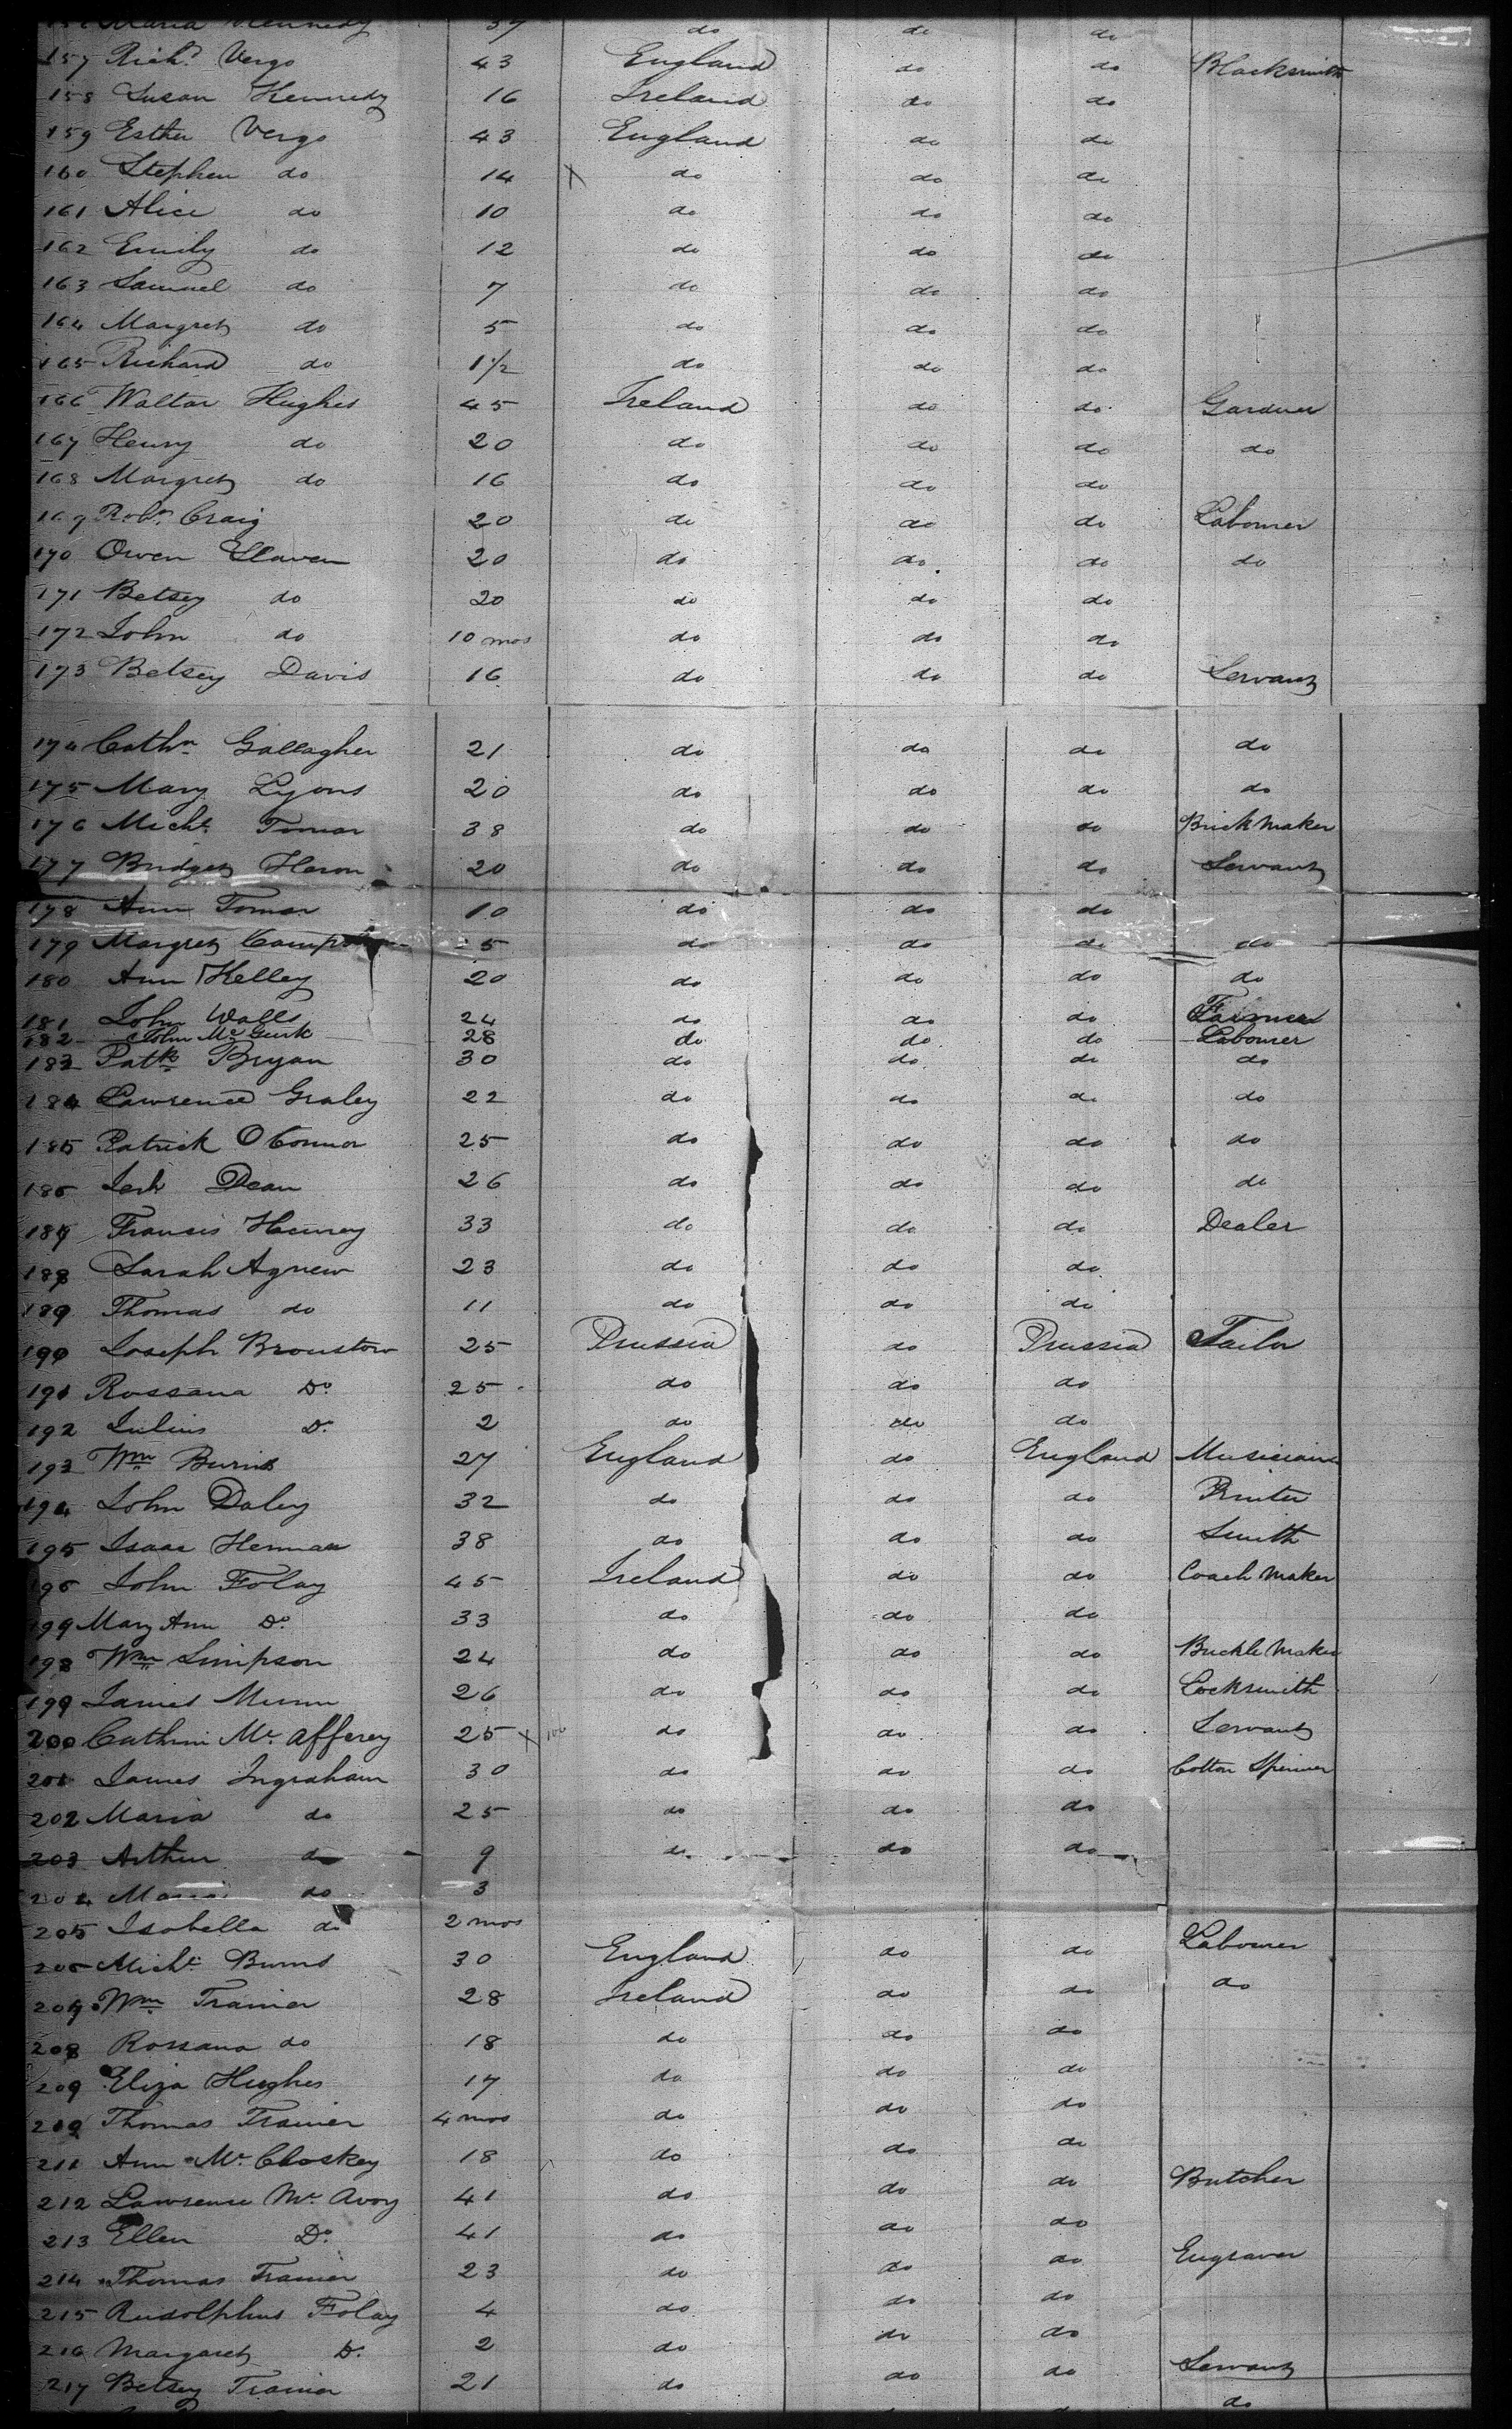 Maria Kennedy 37 do do do
157 Richd. Vergo 43 England do do Blacksmith
158 Susan Kennedy 16 Ireland do do
159 Esther Vergo 43 England do do
160 Stephen do 14 X do do do
161 Alice do 10 do do do
162 Emily do 12 do do do
163 Samuel do 7 do do do
164 Margret do 5 do do do
165 Richard do 1 1/2 do do do
166 Waltar Hughes 45 Ireland do do Gardner
167 Henry do 20 do do do do
168 Margret do 16 do do do
169 Robt. Craig 20 do do do Labourer
170 Owen Slaven 20 do do do do
171 Betsey do 20 do do do
172 John do 10 mos do do do
173 Betsey Davis 16 do do do Servant
174 Cathn Gallagher 21 do do do do
175 Mary Lyons 20 do do do do
176 Michl. Tomar 38 do do do Brick Maker
177 Bridget Heron 20 do do do Servant
178 Ann Tomar 10 do do do
179 Margret 5 do do do do
180 Ann Kelley 20 do do do do
181 John Walls 24 do do do Farmer
182 John McGurk 28 do do do Labourer
183 Patk Bryan 30 do do do do
184 Lawrence Graley 22 do do do do
185 Patrick O Connor 25 do do do do
186 Dean 26 do do do do
187 Francis Henrey 33 do do do Dealer
188 Sarah Agnew 23 do do do
189 Thomas do 11 do do do
190 Joseph Bronstow 25 Prussia do Prussia Tailor
191 Rossana Do 25 do do do
192 Julius Do 2 do do do
193 Wm Burns 27 England do England Musician
194 John Daley 32 do do do Printer
195 Isaac Herman 38 do do do Smith
196 John Folay 45 Ireland do do Coach Maker
197 Mary Ann Do 33 do do do
198 Wm Simpson 24 do do do Buckle Maker
199 James Munn 26 do do do Locksmith
200 Cathrin Mc Afferey 25 X do do do Servant
201 James Ingraham 30 do do do Cotton Spinner
202 Maria do 25 do do do
203 Arthur do 9 do do do
204 Maria do 3
205 Isobella do 2 mos
206 Michl. Burns 30 England do do Labourer
207 Wm Trainer 28 Ireland do do do
208 Rossana do 18 do do do
209 Eliza Hughes 17 do do do
210 Thomas Trainer 4 mos do do do
211 Ann Mc Closkey 18 do do do
212 Lawrence Mc Avoy 41 do do do Butcher
213 Ellen Do 41 do do do
214 Thomas Trainer 23 do do do Engraver
215 Rudolphus Folay 4 do do do
216 Margaret Do 2 do do do
217 Betsey Trainer 21 do do do Servant
do